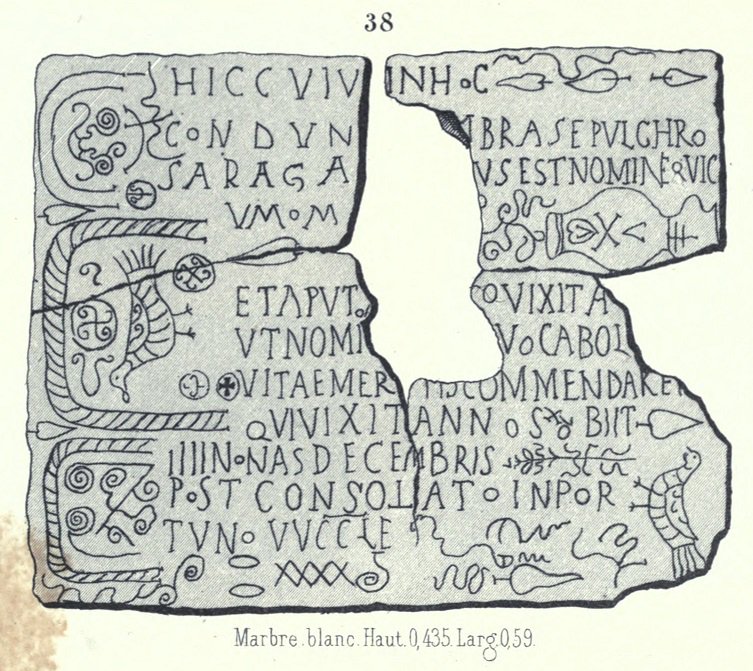 38
HICCVIV INHOC
CONDVN BRASEPVLCHRO
SARAGA VSESTNOMINEQVIC
VMOM
ETAPVTO OVIXITA
VTNOMI VOCABOL
VITAEMER COMMENDARET
QVIVIXITANNOS BIIT
IIIINONASDECEMBRIS
POSTCONSOLATOINPOR
TVNOVVCCLE
XXXX
Marbre.blanc.Haut.0,435.Larg.0,59.